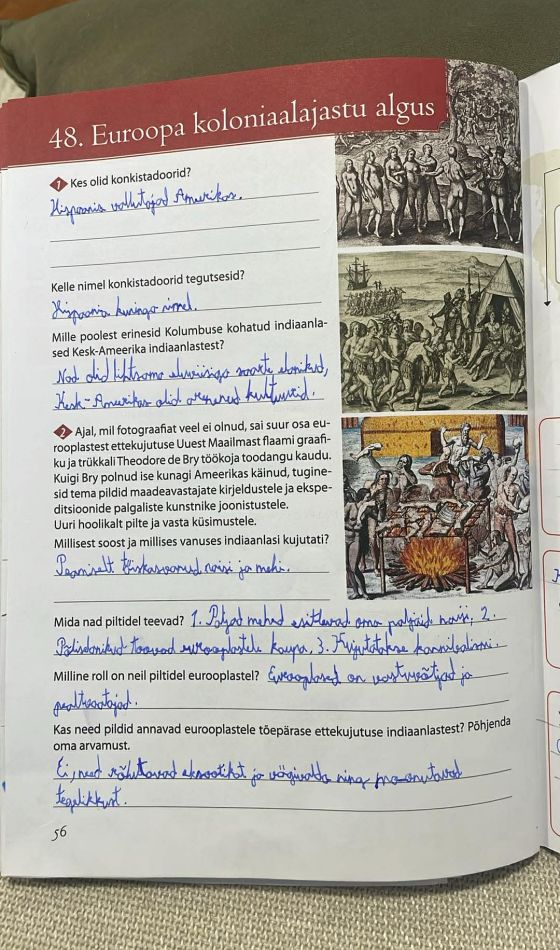 48. Euroopa koloniaalajastu algus
1 Kes olid konkistadoorid?
Hispaania vallutajad Amerikas.
Kelle nimel konkistadoorid tegutsesid?
Hispaania kuninga nimel.
Mille poolest erinesid Kolumbuse kohatud indiaanla-
sed Kesk-Ameerika indiaanlastest?
Nad olid lihtsama eluviisiga saarte elanikud,
Kesk-Amerikas olid arenenud kultuurid.
2 Ajal, mil fotograafiat veel ei olnud, sai suur osa eu-
rooplastest ettekujutuse Uuest Maailmast flaami graafi-
ku ja trükkali Theodore de Bry töökoja toodangu kaudu.
Kuigi Bry polnud ise kunagi Ameerikas käinud, tugine-
sid tema pildid maadeavastajate kirjeldustele ja ekspe-
ditsioonide palgaliste kunstnike joonistustele.
Uuri hoolikalt pilte ja vasta küsimustele.
Millisest soost ja millises vanuses indiaanlasi kujutati?
Peamiselt täiskasvanud naisi ja mehi.
Mida nad piltidel teevad? 1. Paljad mehed esitlevad oma paljaid naisi, 2.
Põliselanikud toovad eurooplastele kaupa, 3. Kujutatakse kannibalismi.
Milline roll on neil piltidel eurooplastel? Eurooplased on vastuvõtjad ja
pealtvaatajad.
Kas need pildid annavad eurooplastele tõepärase ettekujutuse indiaanlastest? Põhjenda
oma arvamust.
Ei, need rõhutavad eksootikat ja vägivalda ning moonutavad
tegelikkust.
56